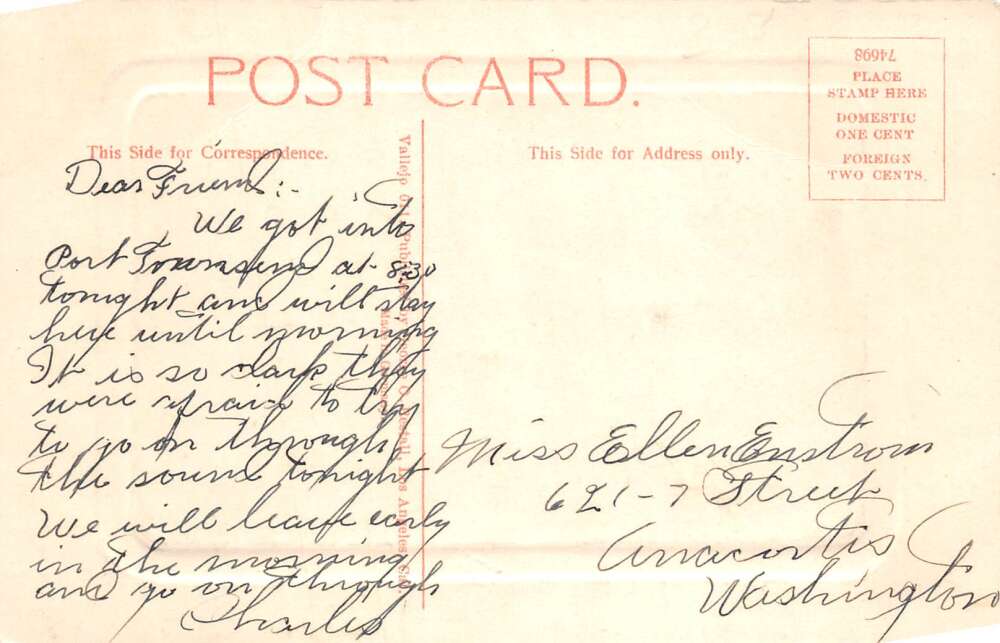 POST CARD.
74698
PLACE
STAMP HERE
DOMESTIC
ONE CENT
FOREIGN
TWO CENTS.
This Side for Correspondence.
This Side for Address only.
Dear Friend:-
We got into
Port Townsend at 8:30
tonight and will stay
here until morning
It is so dark they
were afraid to try
to go on through
the sound tonight
We will leave early
in the morning
and go on through
Charles
Vallejo
Los Angeles
Miss Ellen Enstrom
621-7 Street
Anacortis
Washington